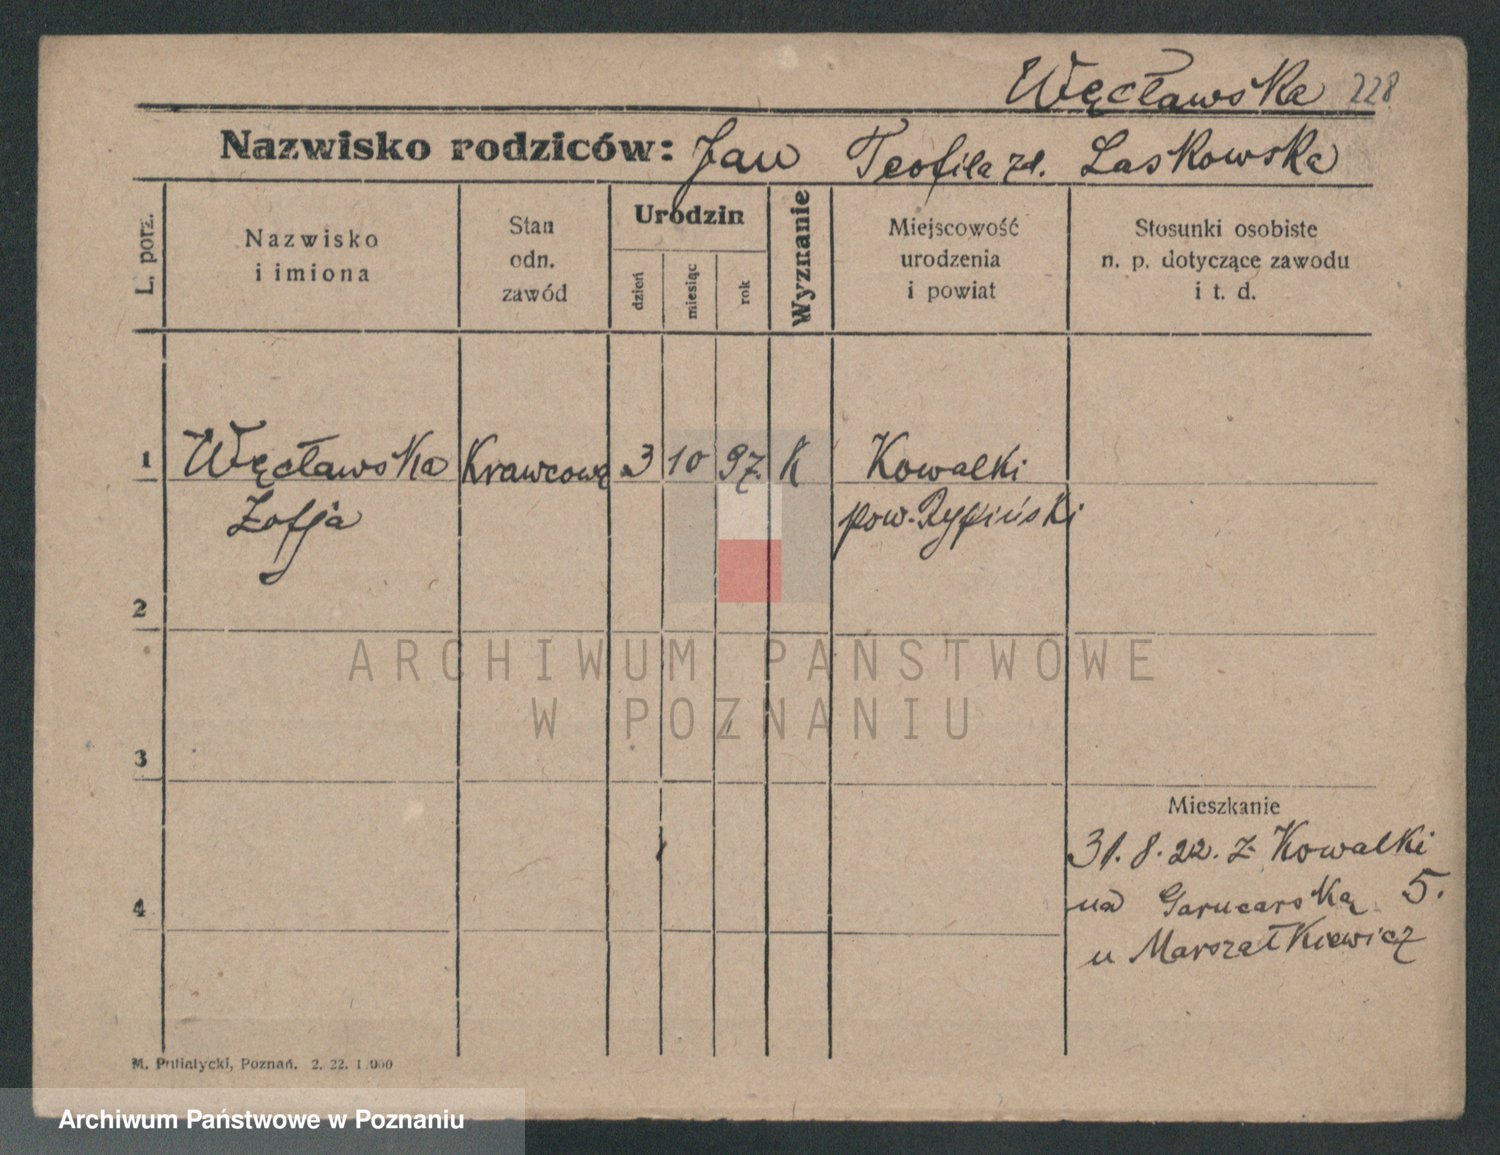 Węcławska 228
Nazwisko rodziców: Jan Teofila zd. Laskowska
L. porz.
Nazwisko
i imiona
Stan
odn.
zawód
Urodzin
dzień
miesiąc
rok
Wyznanie
Miejscowość
urodzenia
i powiat
Stosunki osobiste
n. p. dotyczące zawodu
i t. d.
1 Węcławska Krawcowa 3 10 97. K Kowalki
Zofja pow. Rypiński
2
ARCHIWUM PAŃSTWOWE
W POZNANIU
3
Mieszkanie
31. 8. 22. z Kowalki
4 na Garncarską 5.
u Marszałkiewicz
M. Putiatycki, Poznań. 2. 22. 1.000
Archiwum Państwowe w Poznaniu